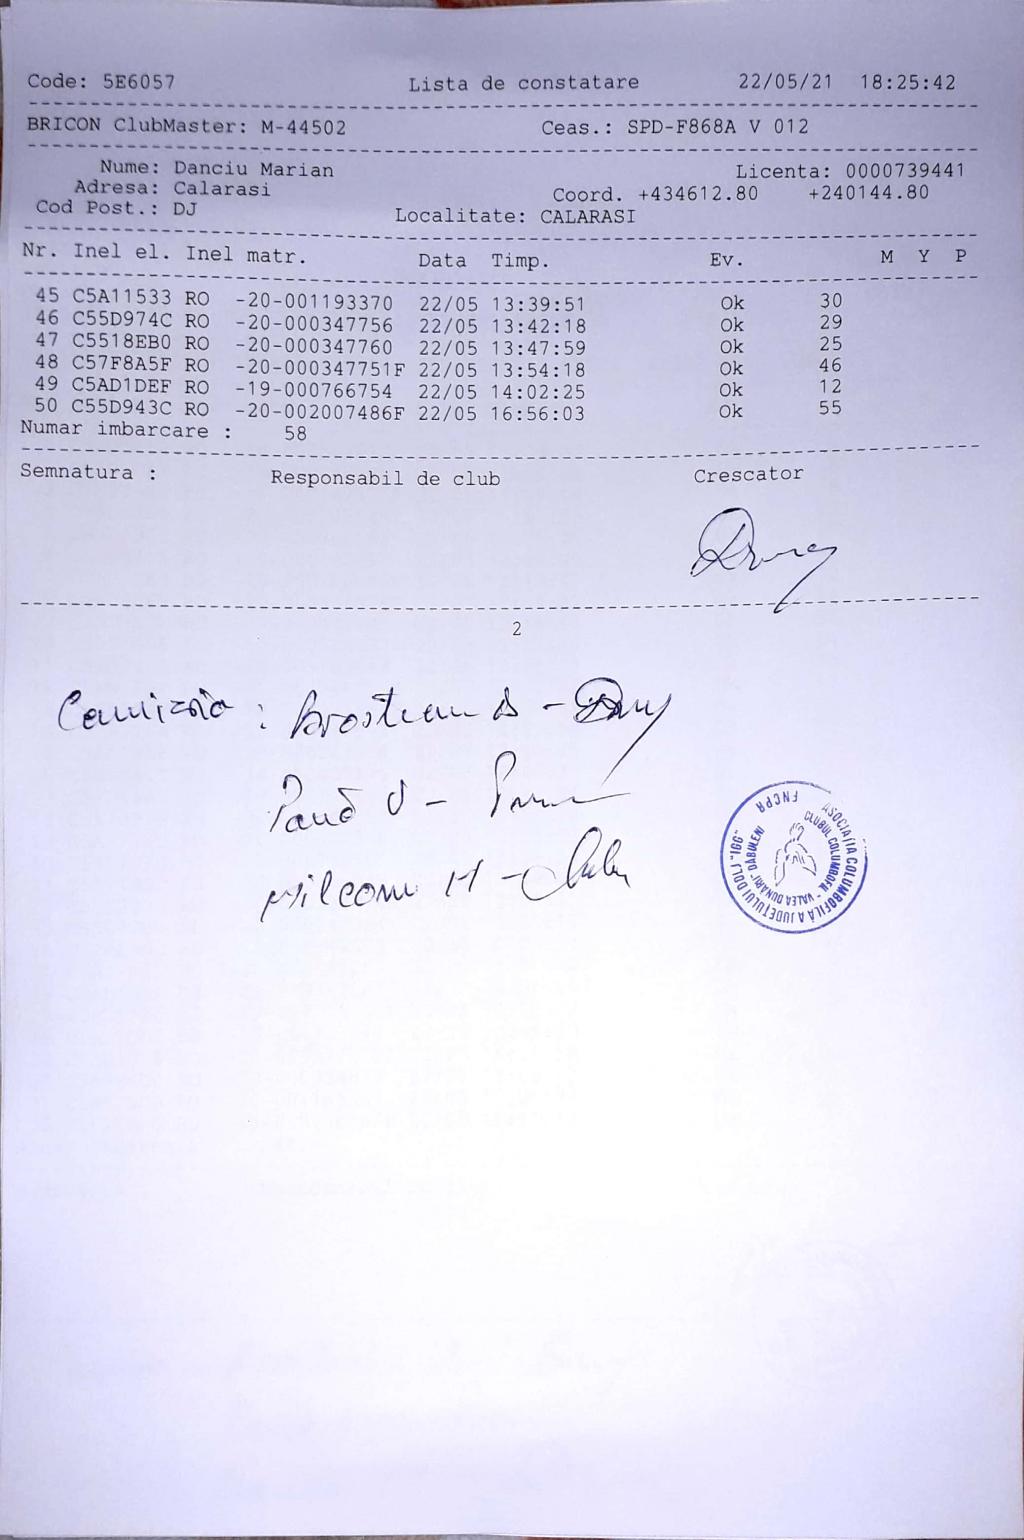 Code: 5E6057 Lista de constatare 22/05/21 18:25:42
BRICON ClubMaster: M-44502 Ceas.: SPD-F868A V 012
Nume: Danciu Marian Licenta: 0000739441
Adresa: Calarasi Coord. +434612.80 +240144.80
Cod Post.: DJ Localitate: CALARASI
Nr. Inel el. Inel matr. Data Timp. Ev. M Y P
45 C5A11533 RO -20-001193370 22/05 13:39:51 Ok 30
46 C55D974C RO -20-000347756 22/05 13:42:18 Ok 29
47 C5518EB0 RO -20-000347760 22/05 13:47:59 Ok 25
48 C57F8A5F RO -20-000347751F 22/05 13:54:18 Ok 46
49 C5AD1DEF RO -19-000766754 22/05 14:02:25 Ok 12
50 C55D943C RO -20-002007486F 22/05 16:56:03 Ok 55
Numar imbarcare : 58
Semnatura : Responsabil de club Crescator
2
Comizia :
Pană V -
ASOCIAȚIA COLUMBOFILĂ A JUDEȚULUI DOLJ "IGG"
FNCPR
CLUBUL COLUMBOFIL "VALEA DUNĂRII" DĂBULENI